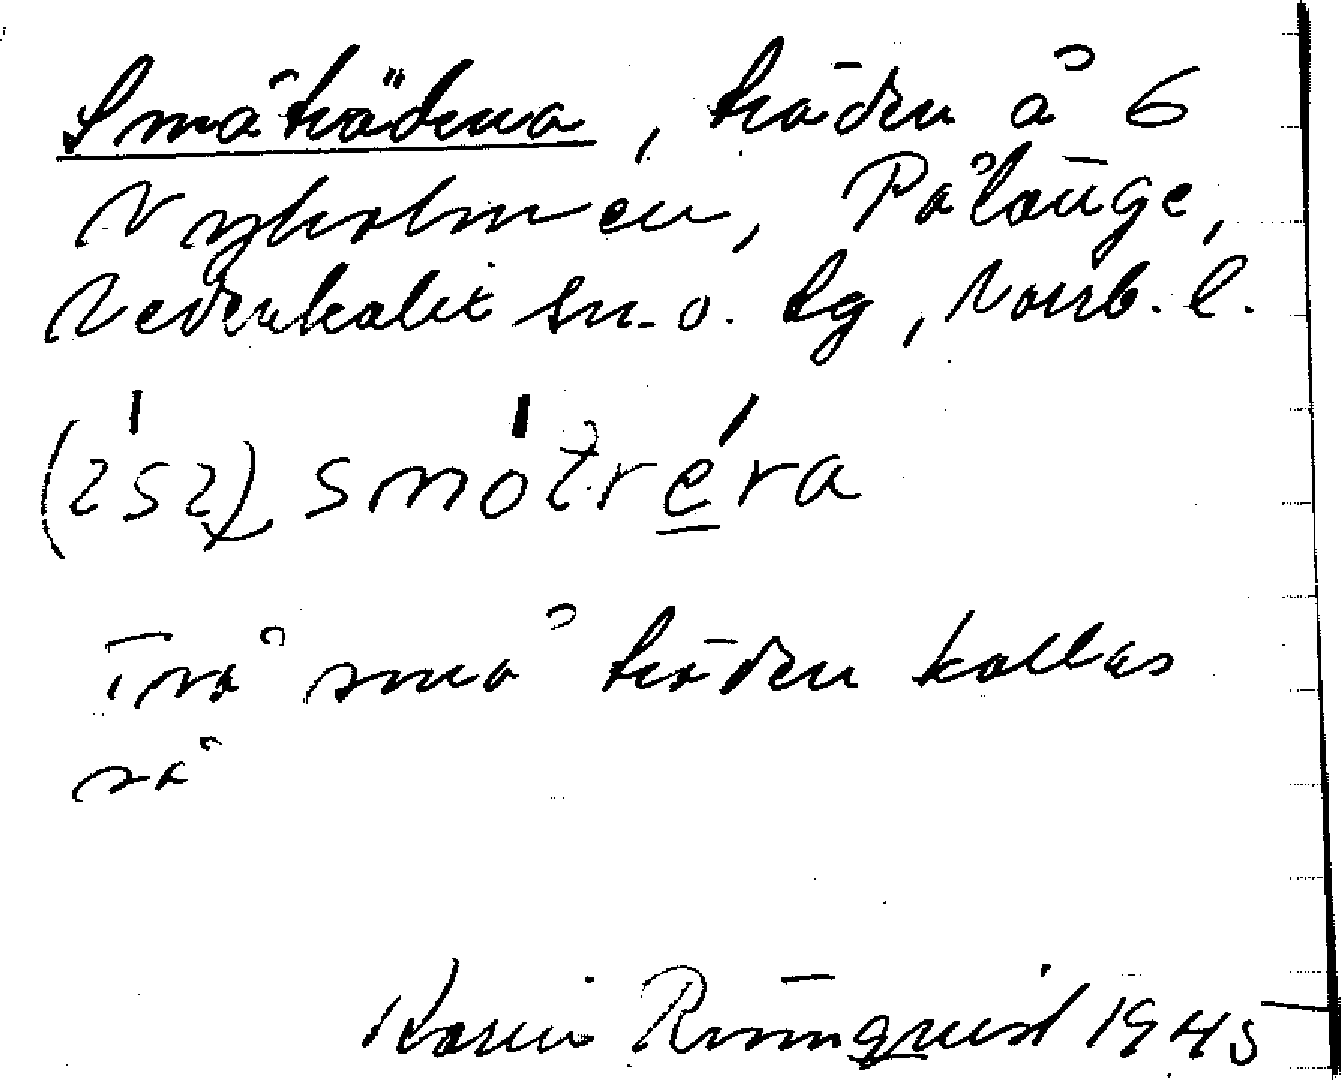 Småträdena, träden å 6
Nyholmen, Pålänge,
Nederkalix sn. o. tg, Norrb. l.
(252) smótréra
Två små träden kallas
så
Karin Rönnquist 1945